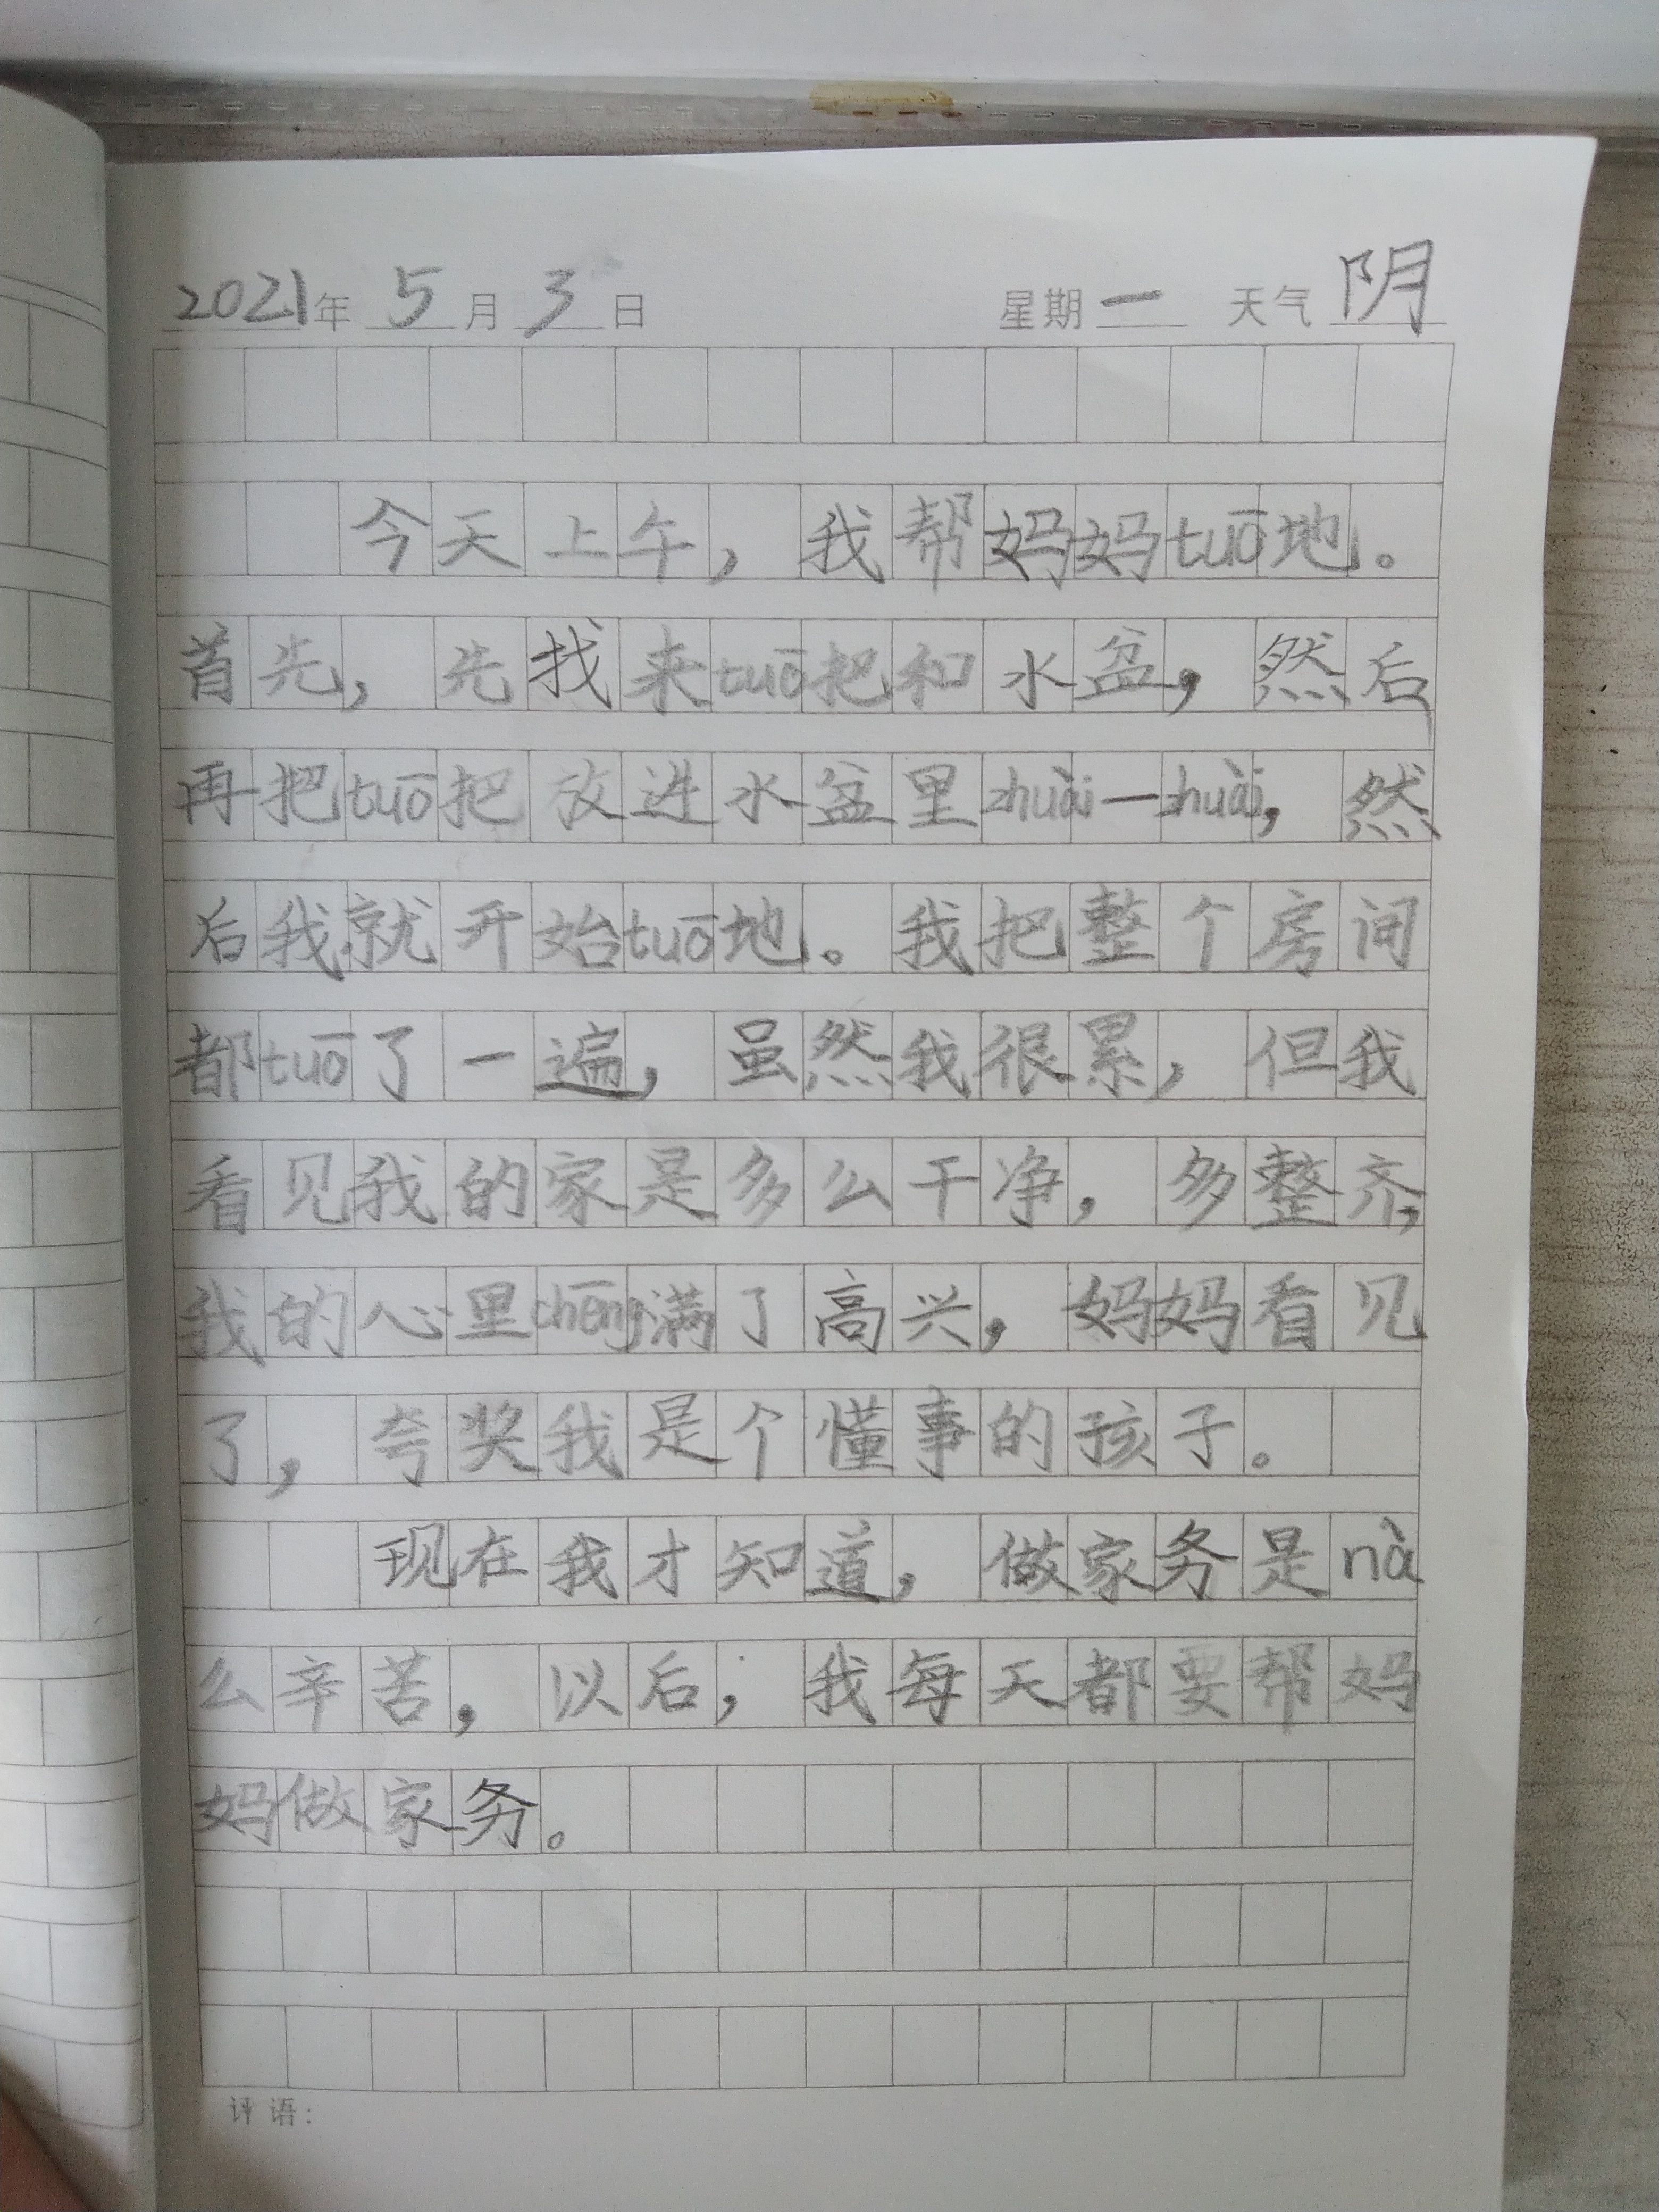 2021年 5月 3日 星期一 天气 阴
今天上午，我帮妈妈tuō地。
首先，先找来tuō把和水盆，然后
再把tuō把放进水盆里zhuài一zhuài，然
后我就开始tuō地。我把整个房间
都tuō了一遍，虽然我很累，但我
看见我的家是多么干净，多整齐，
我的心里chēng满了高兴，妈妈看见
了，夸奖我是个懂事的孩子。
现在我才知道，做家务是nà
么辛苦，以后，我每天都要帮妈
妈做家务。
评语：